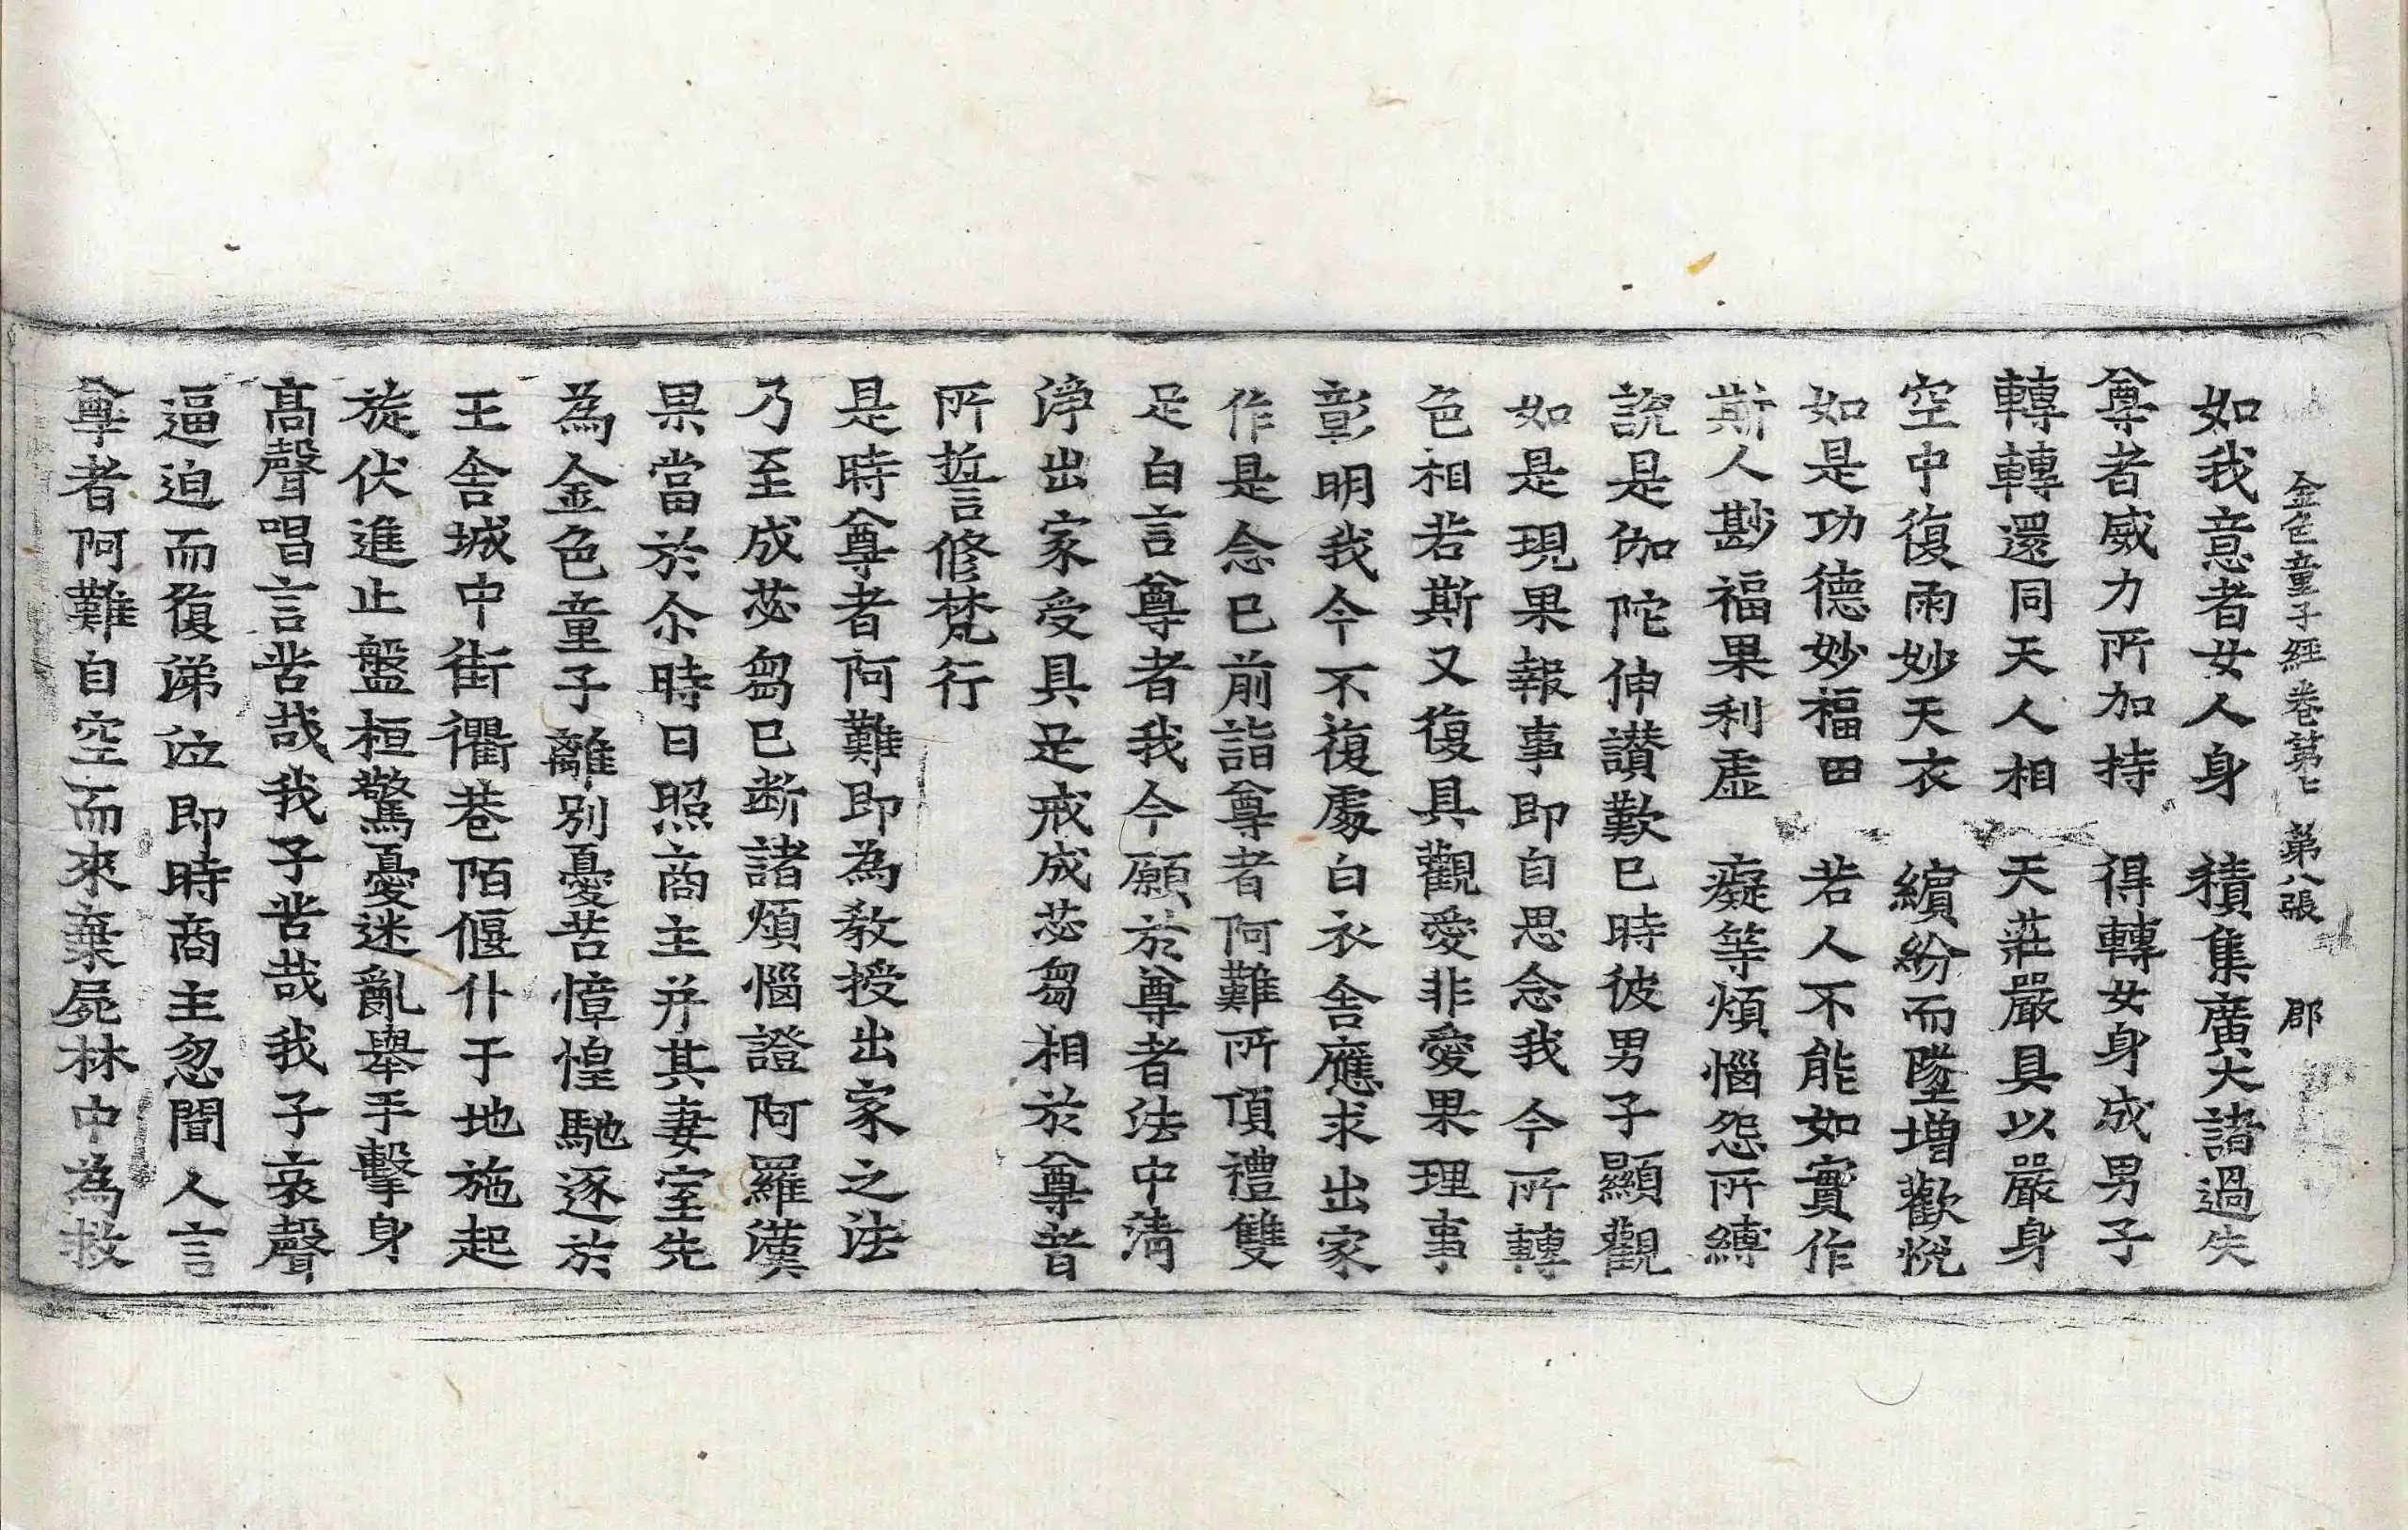 金色童子經卷第七　第八張　郡
如我意者女人身　積集廣大諸過失
尊者威力所加持　得轉女身成男子
轉轉還同天人相　天莊嚴具以嚴身
空中復雨妙天衣　繽紛而墜增歡悅
如是功德妙福田　若人不能如實作
斯人尠福果利虛　癡等煩惱怨所縛
說是伽陀伸讚歎已時彼男子顯觀
如是現果報事即自思念我今所轉
色相若斯又復具觀愛非愛果理事
彰明我今不復處白衣舍應求出家
作是念已前詣尊者阿難所頂禮雙
足白言尊者我今願於尊者法中清
淨出家受具足戒成苾芻相於尊者
所誓修梵行
是時尊者阿難即為教授出家之法
乃至成苾芻已断諸煩惱證阿羅漢
果當於尒時日照商主并其妻室先
為金色童子離別憂苦慞惶馳逐於
王舍城中街衢巷陌偃仆于地施起
旋伏進止盤桓驚憂迷亂舉手擊身
高聲唱言苦哉我子苦哉我子哀聲
逼迫而復涕泣即時商主忽聞人言
尊者阿難自空而來棄屍林中為救